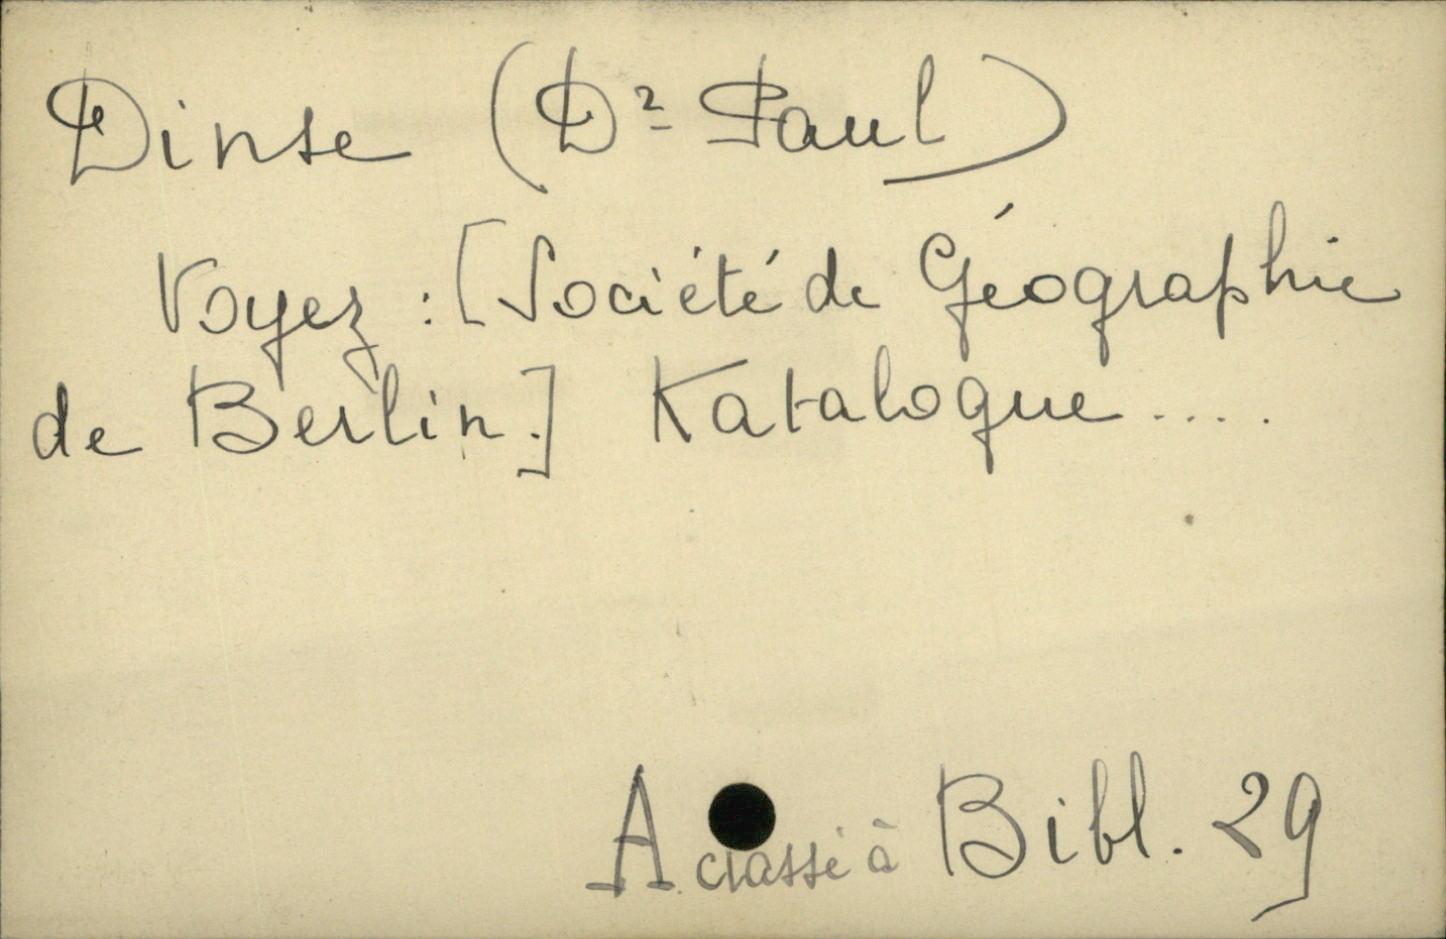 Dinse (Dr Paul)
Voyez : [Société de Géographie
de Berlin.] Katalogue ....
A classé à Bibl. 29